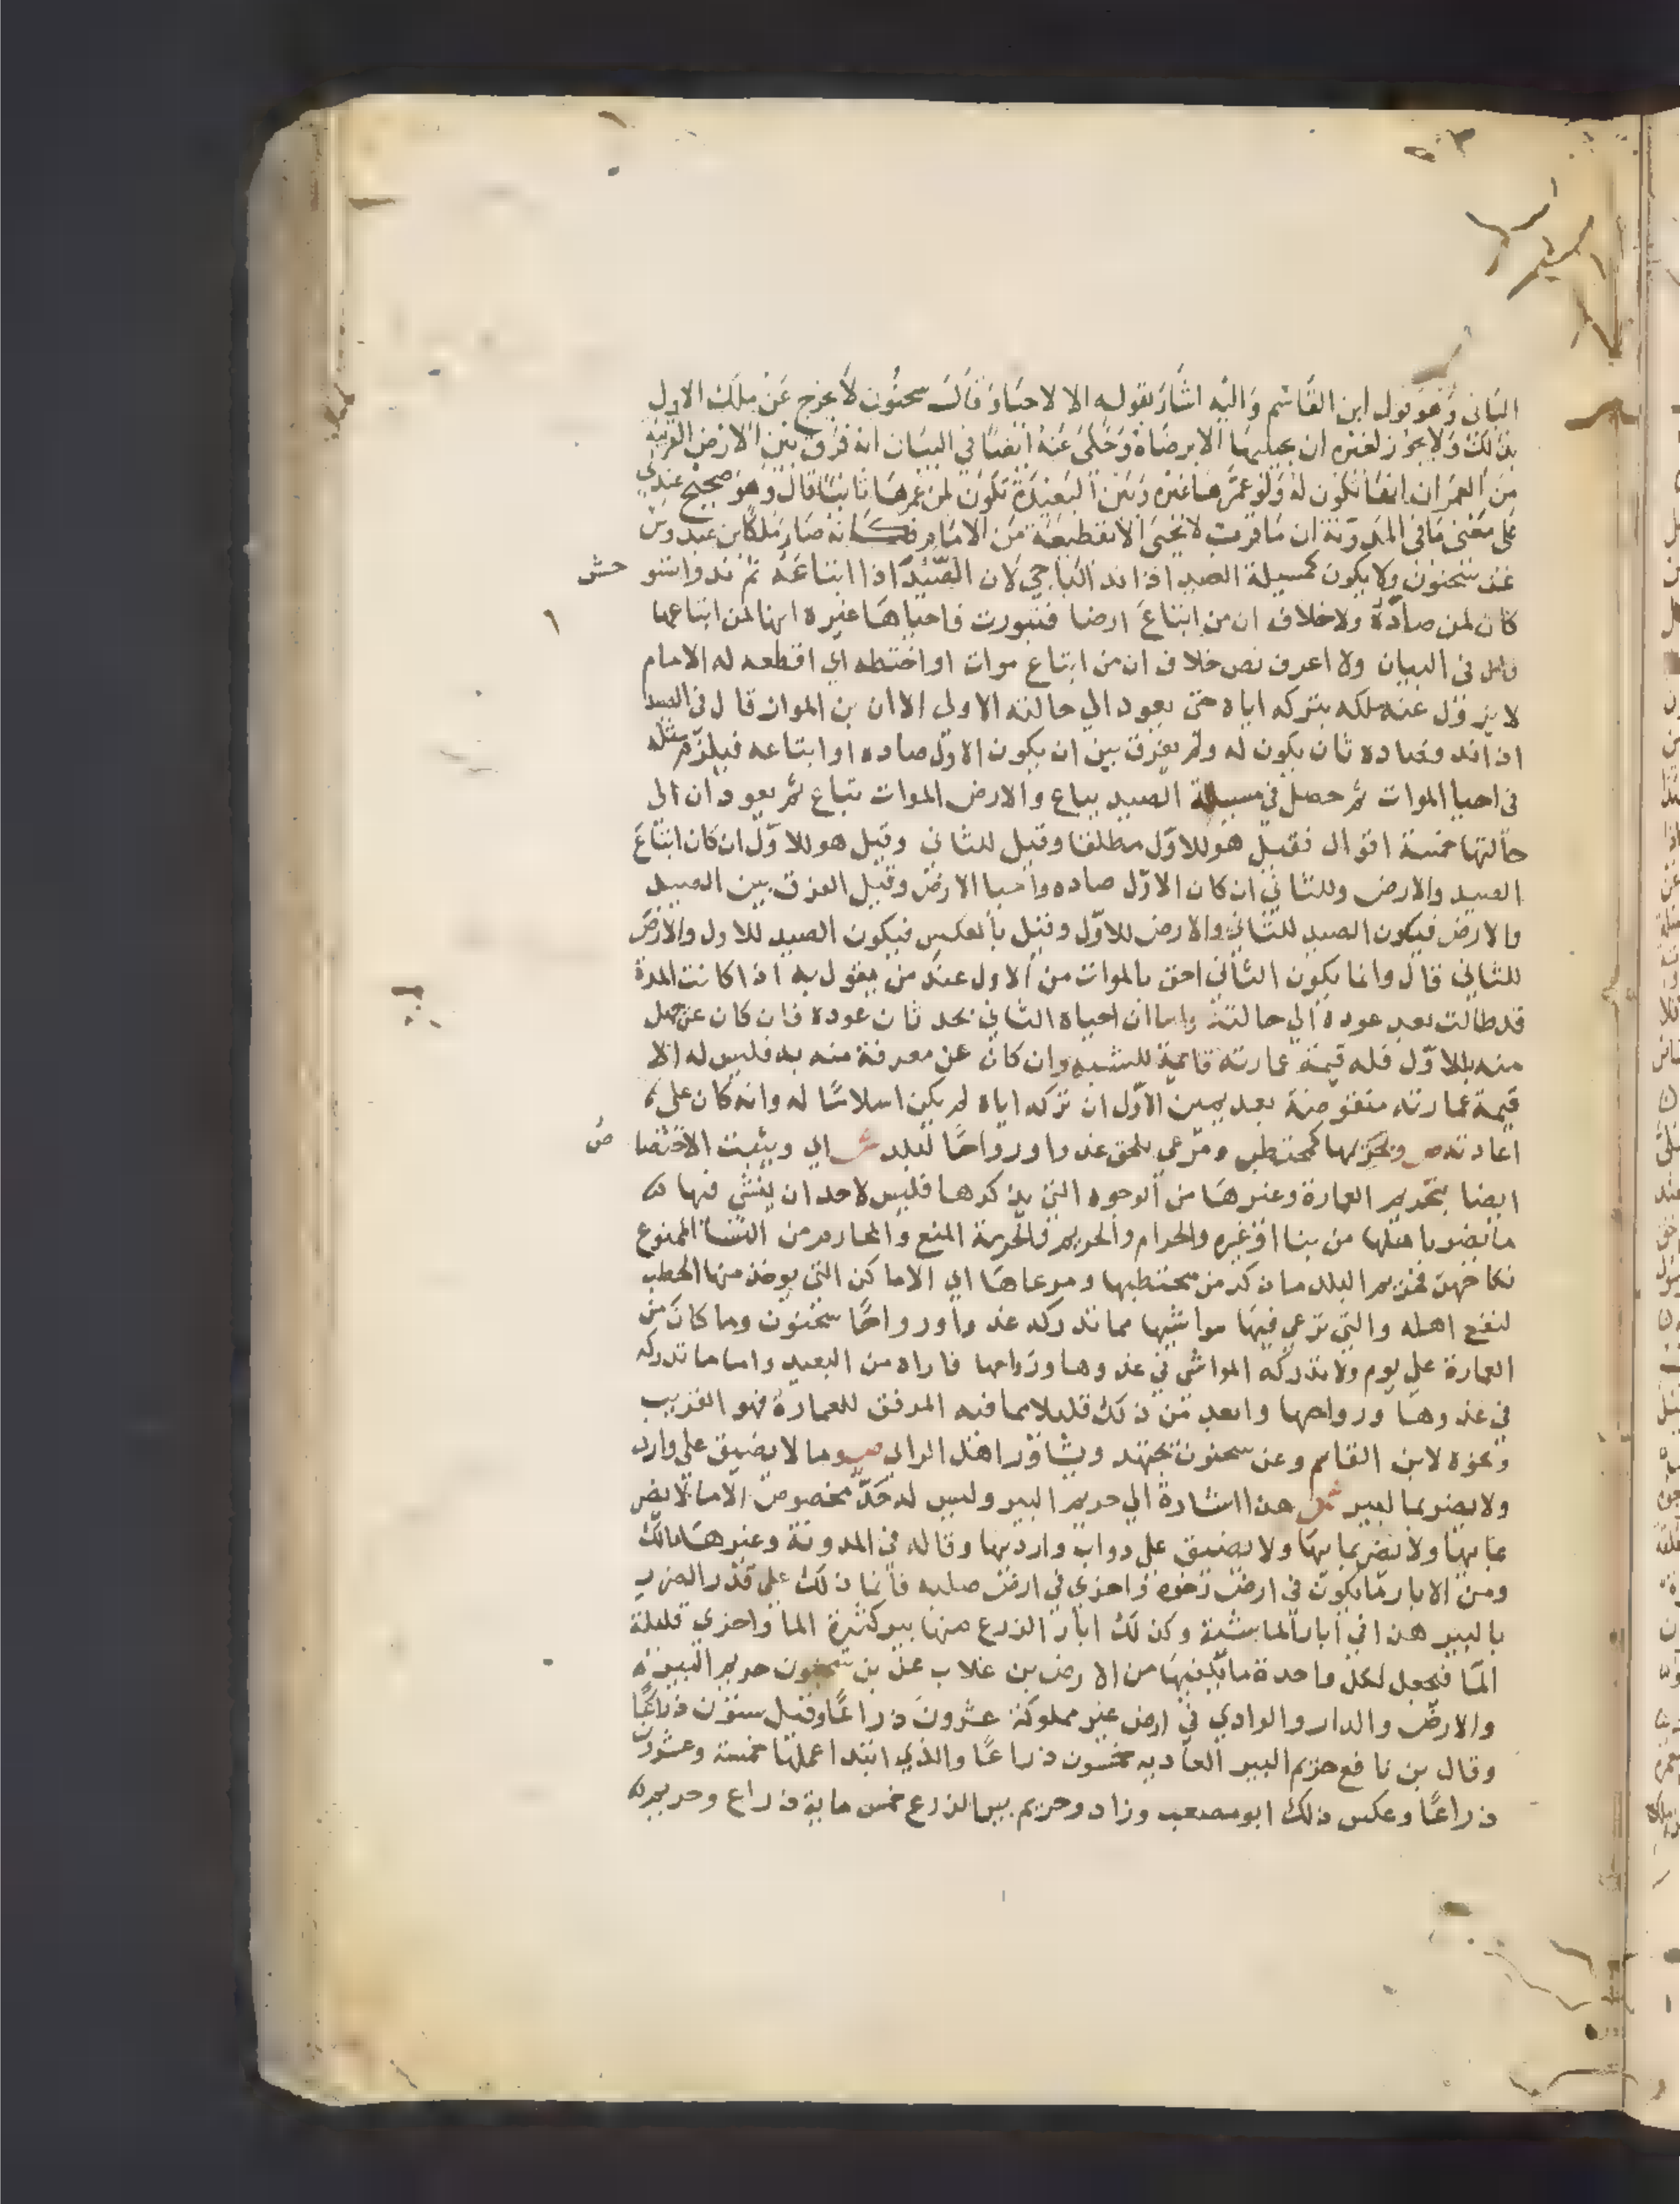 الثاني وهو قول ابن القاسم واليه اشار بقوله الا لاحياء وقال سحنون لا يخرج عن ملك الاول
بذلك ولا يجوز لغيره ان يحييها الا برضاه وحكى عنه ايضا في البيان انه فرق بين الارض القريبة
من العمران انها تكون له ولو عمرها غيره وبين البعيدة تكون لمن عمرها ثانيا قال وهو صحيح عندي
على معنى ما في المدونة ان ما قرب لا يحيى الا بقطيعة من الامام فكانه صار ملكا بن عبدوس
عند سحنون ولا يكون كمسيلة الصيد اذا ند الباجي لان الصيد اذا ابتاعه ثم ند واستو حش
كان لمن صاده ولا خلاف ان من ابتاع ارضا فتبورت فاحياها غيره انها لمن ابتاعها
قال في البيان ولا اعرف نص خلاف ان من ابتاع موات او اختطه اي اقطعه له الامام
لا يزول عنه ملكه بتركه اياه حتى يعود الي حالته الاولى الا ان بن المواز قال في الصيد
اذا ند وصاده ثان يكون له ولم يفرق بين ان يكون الاول صاده او ابتاعه فيلزم مثله
في احيا الموات ثم حصل في مسيلة الصيد يباع والارض الموات تباع ثم يعودان الى
حالتها خمسة اقوال فقيل هو للاول مطلقا وقيل للثاني وقيل هو للاول ان كان ابتاع
الصيد والارض وللثاني ان كان الاول صاده واحيا الارض وقيل الفرق بين الصيد
والارض فيكون الصيد للثاني والارض للاول وقيل بالعكس فيكون الصيد للاول والارض
للثاني قال وانما يكون الثاني احق بالموات من الاول عند من يقول به اذا كانت المدة
قد طالت بعد عوده الي حالته واما ان احياه الثاني بحد ثان عوده فان كان عن جهل
منه بالاول فله قيمة عمارته قايمة للشبهه وان كان عن معرفة منه به فليس له الا
قيمة عمارته منقوضة بعد يمين الاول ان تركه اياه لم يكن اسلاما له وانه كان على
اعادته ص وبحريمها كمحتطب ومرعى يلحق غدوا ورواحا لبلد ش اي ويثبت الاختصا ص
ايضا بتحريم العمارة وغيرها من الوجوه التي يذكرها فليس لاحد ان ينشي فيها
ما يضر باهلها من بنا او غيره والحرام والحريم والحرمة المنع والمحارم من النسا الممنوع
نكاحهن فحريم البلد ما ذكر من محتطبها ومرعاها اي الاماكن التي يوخذ منها الحطب
لنفع اهله والتي ترعى فيها مواشيها مما تدركه غدوا ورواحا سحنون وما كان من
العمارة علي يوم ولا تدركه المواشي في غدوها ورواحها فاراه من البعيد واما ما تدركه
في غدوها ورواحها وابعد من ذلك قليلا مما فيه المرفق للعمارة فهو القريب
ونحوه لابن القاسم وعن سحنون يجتهد ويشاور اهل الراي ص وما لا يضيق على وارد
ولا يضر بما لبير ش هذا اشارة الي حريم البير وليس له حد مخصوص الا ما لا يضر
بمابها ولا يضر بما بها ولا يضيق علي دواب وارديها وقاله في المدونة وغيرها مالك
ومن الابار ما يكون في ارض رخوة واخرى في ارض صلبه فانما ذلك على قدر الضرر
بالبير هذا في ابار الماشية وكذلك ابار الزرع منها بير كثيرة الما واخرى قليلة
الما فيجعل لكل واحدة ما يكفيها من الارض بن غلاب عن بن سحنون حريم البير
والارض والدار والوادي في ارض غير مملوكة عشرون ذراعا وقيل ستون ذراعا
وقال بن نافع حريم البير العاديه خمسون ذراعا والذي ابتدا عملها خمسة وعشرون
ذراعا وعكس ذلك ابو مصعب وزاد وحريم بير الزرع خمس ماية ذراع وحريم